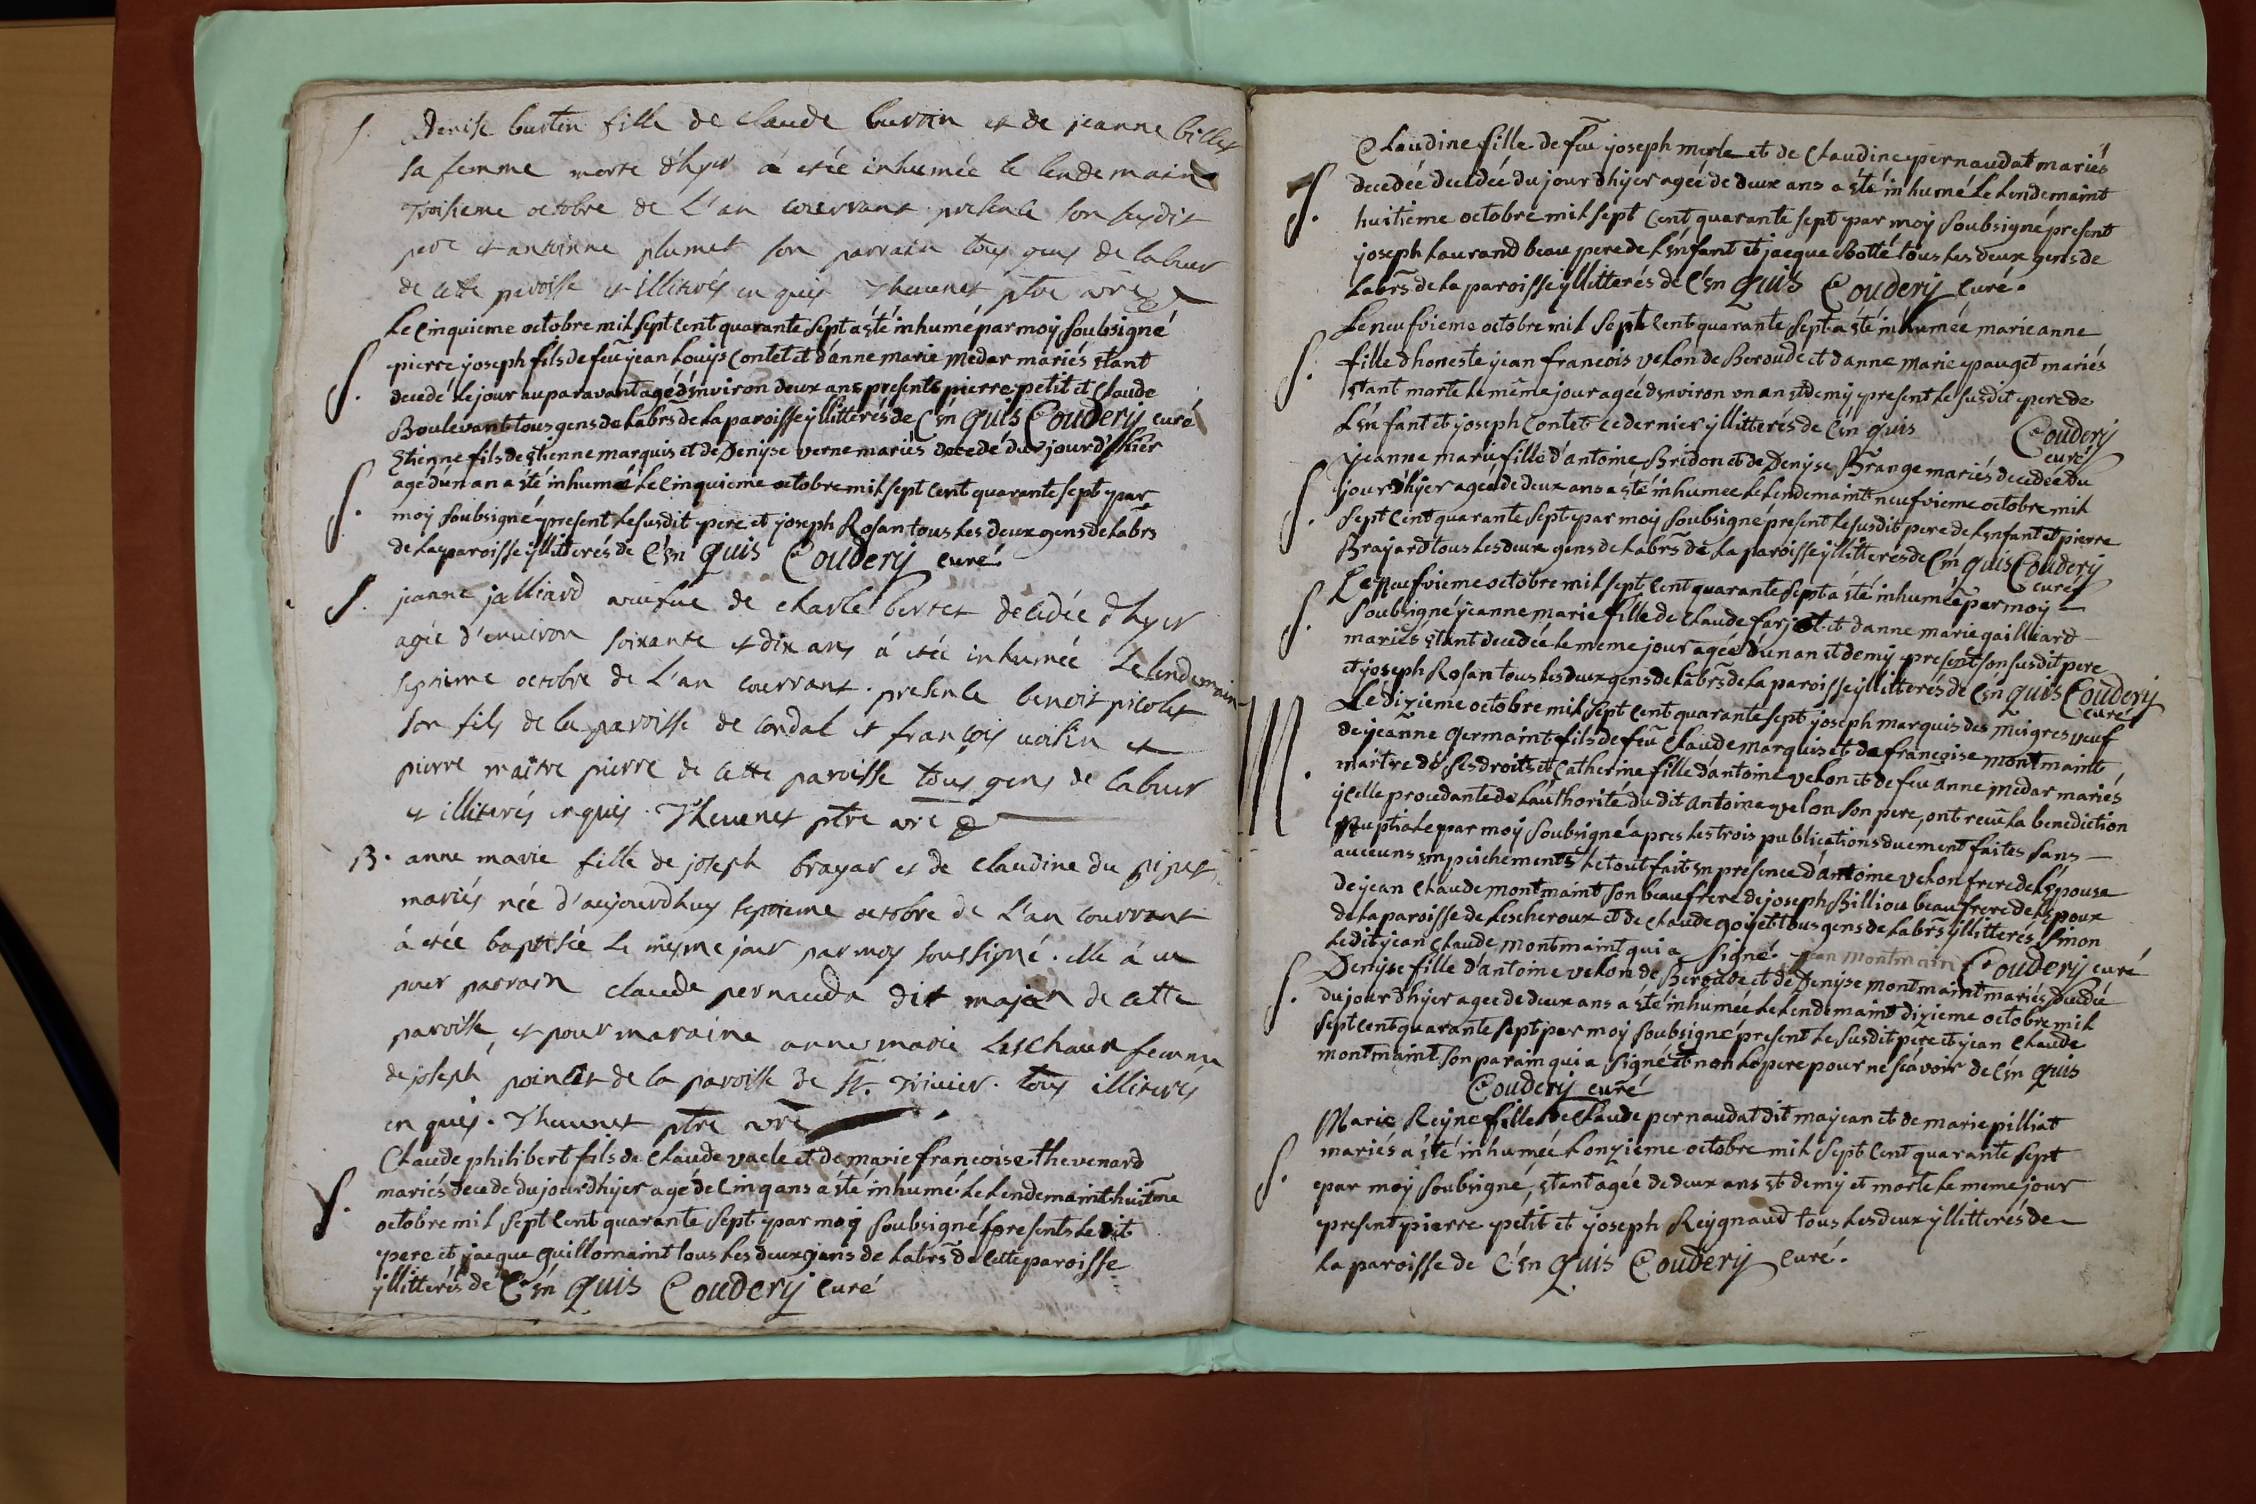 S. Denise burtin fille de claude burtin et de jeanne billet
sa femme morte d'hyer á etée inhumée le lendemain
troisieme octobre de L'an courrant presence son susdit
pere et antoinne plumet son parrain tous gens de labeur
de cette paroisse et illiterés enquis Theuenet ptre vire
Le Cinquieme octobre mil sept cent quarante sept a été inhumé par moÿ soubsigné
S. pierre joseph fils de feu jean Louÿs Contet et d'anne marie medar mariés étant
decedé le jour auparavant agé d'environ deux ans presents pierre petit et Claude
Boulevant tous gens de Labrs de La paroisse ÿllitterés de C'en quis Couderÿ curé
Etienne fils d'etienne marquis et de Denÿse verne mariés decedé du jour d'hier
S. agé d'un an a été inhumé Le Cinquieme octobre mil sept cent quarante sept par
moÿ soubsigné present Le susdit pere et joseph Rosan tous Les deux gens de Labrs
de La paroisse ÿllitterés de C'en quis Couderÿ curé
S. jeanne jalliard veufue de charle bertet decedée d'hyer
agée d'enuiron soixante et dix ans á etée inhumée Le lendemain
septieme octobre de L'an courrant. presence benoit picolet
son fils de la paroisse de condal et françois uoisin et
pierre maitre pierre de cette paroisse tous gens de labeur
et illiterés enquis. Theuenet ptre vire
B. anne marie fille de joseph brayar et de claudine du pipet
mariés née d'aujourdhuy septieme octobre de L'an courrant
á etée baptisée Le mesme jour par moy soussigné. elle á eu
pour parrain claude pernauda dit majan de cette
paroisse, et pour maraine anne marie Leschaux femme
de joseph poinlet de la paroisse de St. Triuier. tous illiterés
enquis. Theuenet ptre vire
Claude philibert fils de Claude vacle et de marie francoise thevenard
mariés decede du jour d'hÿer agé de Cinq ans a été inhumé Le Lendemaint huitme
S. octobre mil sept cent quarante sept par moÿ soubsigné presents Le dit
pere et jacque guillomaint tous Les deux gens de Labrs de Cette paroisse
ÿllitterés de C'en quis Couderÿ Curé
Claudine fille de feu joseph merle et de Claudine pernaudat mariés
decedée decedée du jour d'hÿer agée de deux ans a été inhumé Le Lendemaint
S. huitieme octobre mil sept cent quarante sept par moÿ soubsigné present
joseph Laurand beau pere de L'enfant et jacque Botté tous Les deux gens de
Labrs de La paroisse ÿllitterés de C'en quis Couderÿ curé.
Le neufvieme octobre mil sept cent quarante sept a été inhumée marie anne
S. fille d'honeste jean francois velon de Beroude et danne marie pauget mariés
étant morte Le même jour agée d'environ un an et demÿ present Le susdit pere de
L'enfant et joseph Contet ce dernier ÿllitterés de C'en quis Couderÿ
curé
jeanne marie fille d'antoine Bridon et de Denÿse Grange mariés decedée du
S. jour d'hÿer agée de deux ans a été inhumee Le Lendemaint neufvieme octobre mil
sept cent quarante sept par moÿ soubsigné present Le susdit pere de L'enfant et pierre
Braÿard tous Les deux gens de Labrs de La paroisse ÿllitterés de C'en quis Couderÿ
curé
Le neufvieme octobre mil sept cent quarante sept a été inhumée par moÿ
S. soubsigné jeanne marie fille de Claude farjot et danne marie gailliard
mariés étant decedée Le meme jour agée d'un an et demÿ present son susdit pere
et joseph Rosan tous Les deux gens de Labrs de La paroisse ÿllitterés de C'en quis Couderÿ
curé
M. Le dizieme octobre mil sept cent quarante sept joseph marquis des meigres veuf
de jeanne Germaint fils de feu Claude marquis et de françoise montmaint
maitre de ses droits et Catherine fille d'antoine velon et de feue anne medar mariés
ÿcelle procedante de L'authorité du dit antoine velon son pere, ont receu La benediction
nuptiale par moÿ soubsigné apres Les trois publications duement faites sans
aucuns empeichements Le tout fait en présence d'antoine velon frere de L'épouse
de jean Claude montmaint son beau frere de joseph Billiou beau frere de L'époux
de La paroisse de Lescheroux et de Claude goÿet tous gens de Labrs ÿllitterés Sinon
Le dit jean Claude montmaint qui a signé. jean montmain Couderÿ curé
Denÿse fille d'antoine velon de Beroude et de Denÿse montmaint mariés decedée
S. du jour d'hÿer agee de deux ans a été inhumée Le Lendemaint dizieme octobre mil
sept cent quarante sept par moÿ soubsigné present Le susdit pere et jean Claude
montmaint son parain qui a signé et non Le pere pour ne sçavoir de C'en quis
Couderÿ curé
Marie Reÿne fille de Claude pernaudat dit maÿean et de marie pilliat
mariés a été inhumée L'onzieme octobre mil sept cent quarante sept
S. par moÿ soubsigné, étant agée de deux ans et demÿ et morte Le meme jour
present pierre petit et joseph Reÿgnaud tous Les deux ÿllitterés de
La paroisse de C'en quis Couderÿ curé.